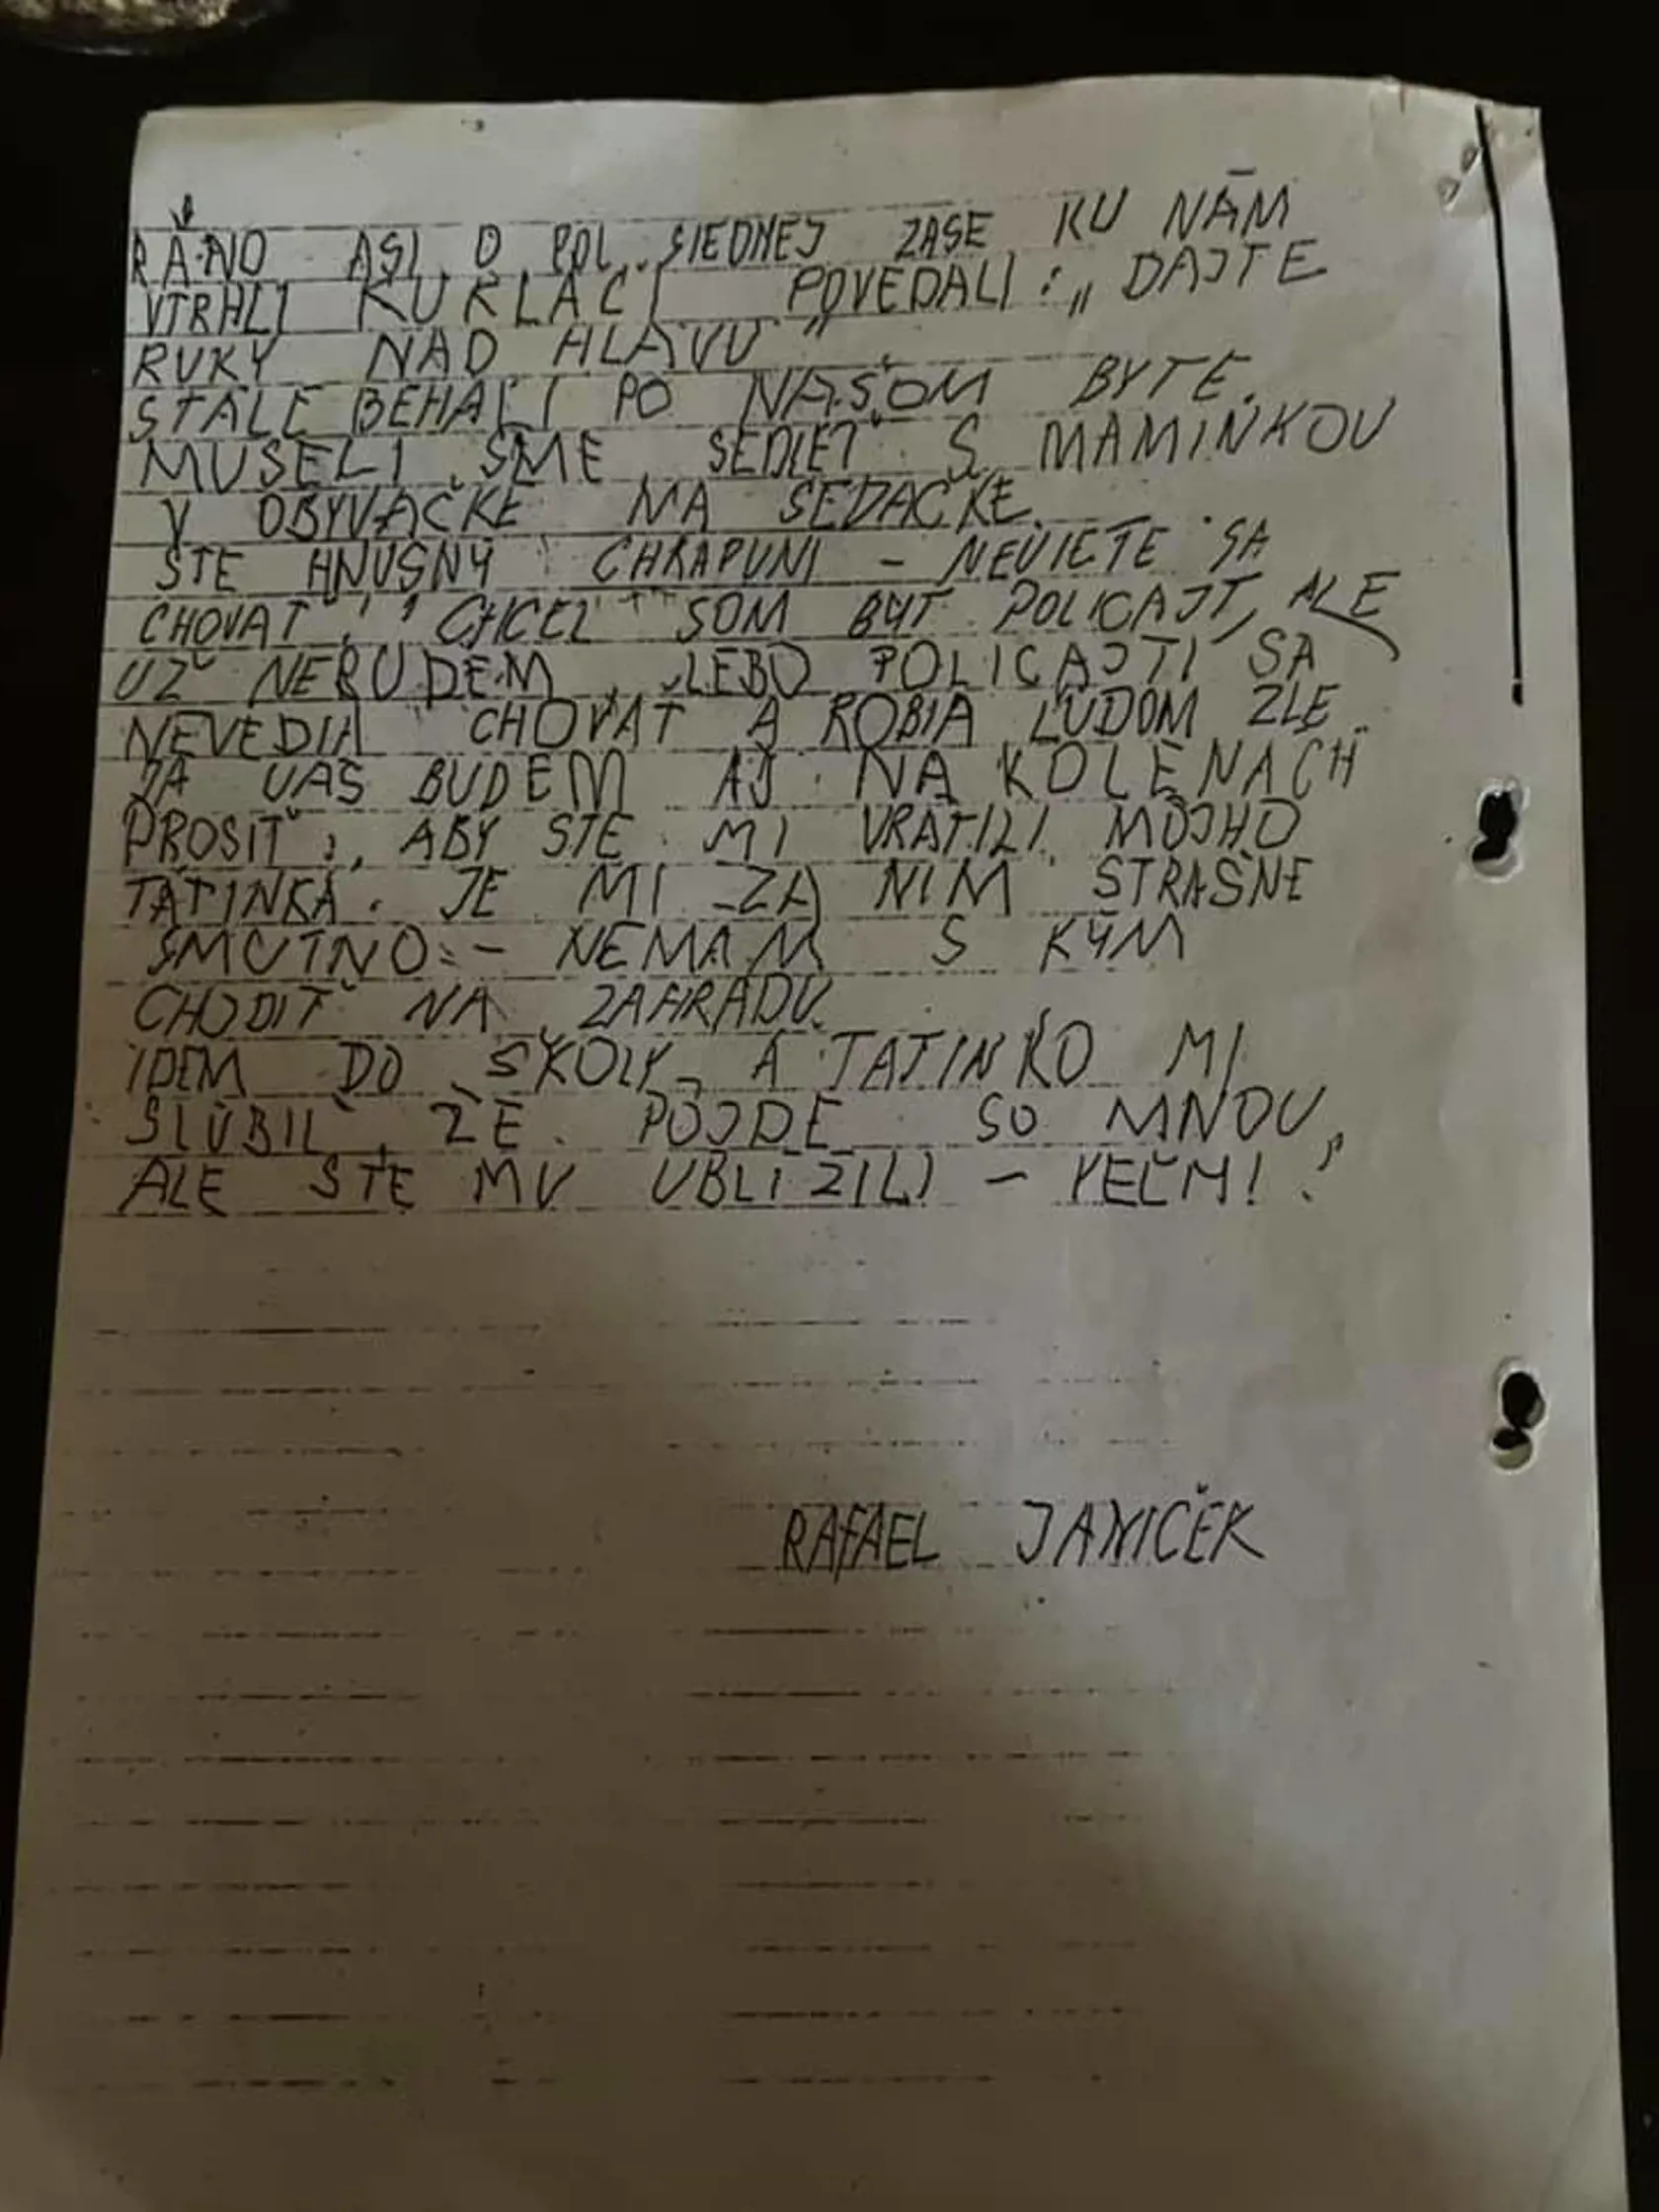 RÁNO ASI O POL SIEDMEJ ZASE KU NÁM
VTRHLI KUKLÁČI POVEDALI: „DAJTE
RUKY NAD HLAVU"
STÁLE BEHALI PO NAŠOM BYTE.
MUSELI SME SEDIEŤ S MAMINKOU
V OBÝVAČKE NA SEDAČKE.
STE HNUSNÝ CHRAPÚNI – NEVIETE SA
CHOVAŤ! CHCEL SOM BYŤ POLICAJT, ALE
UŽ NEBUDEM, LEBO POLICAJTI SA
NEVEDIA CHOVAŤ A ROBIA ĽUĎOM ZLE.
JA VÁS BUDEM AJ NA KOLENÁCH
PROSIŤ, ABY STE MI VRÁTILI MÔJHO
TATINKA. JE MI ZA NÍM STRAŠNE
SMUTNO – NEMÁM S KÝM
CHODIŤ NA ZÁHRADU.
IDEM DO ŠKOLY A TATINKO MI
SĽÚBIL, ŽE PÔJDE SO MNOU,
ALE STE MU UBLÍŽILI –
RAFAEL JANIČEK